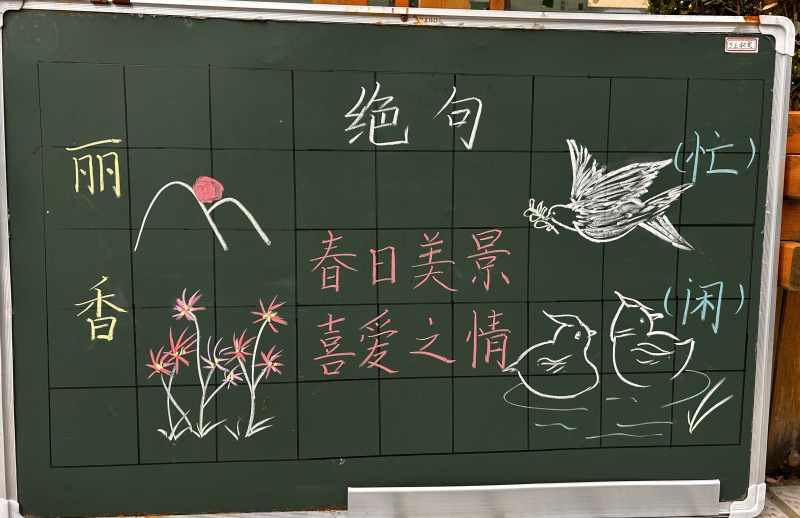 绝句
丽
(忙)
春日美景
香
(闲)
喜爱之情